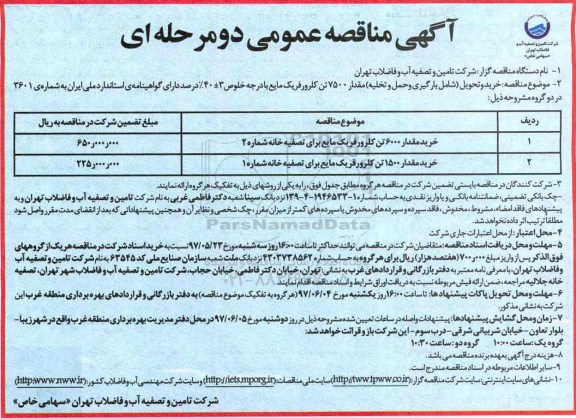 شرکت تامین و تصفیه آب و
فاضلاب تهران
(سهامی خاص)
آگهی مناقصه عمومی دو مرحله ای
۱- نام دستگاه مناقصه گزار: شرکت تامین و تصفیه آب و فاضلاب تهران
۲- موضوع مناقصه: خرید و تحویل (شامل بارگیری و حمل و تخلیه) مقدار ۷۵۰۰ تن کلرورفریک مایع با درجه خلوص ۳±۴۰٪ درصد دارای گواهینامه ی استاندارد ملی ایران به شماره ی ۳۶۰۱
در دو گروه مشروحه ذیل:
ردیف موضوع مناقصه مبلغ تضمین شرکت در مناقصه به ریال
۱ خرید مقدار ۶۰۰۰ تن کلرورفریک مایع برای تصفیه خانه شماره ۲ ۶۵۰٫۰۰۰٫۰۰۰
۲ خرید مقدار ۱۵۰۰ تن کلرورفریک مایع برای تصفیه خانه شماره ۱ ۲۲۵٫۰۰۰٫۰۰۰
۳- شرکت کنندگان در مناقصه بایستی تضمین شرکت در مناقصه هر گروه مطابق جدول فوق، را به یکی از روشهای ذیل به تفکیک هر گروه ارائه نمایند.
-چک بانکی تضمینی، ضمانتنامه بانکی و یا واریز نقدی به حساب شماره ۱-۱۹۴۶۵۳۳-۴-۱۳۹ نزد بانک سینا شعبه دکتر فاطمی غربی به نام شرکت تامین و تصفیه آب و فاضلاب تهران و به
پیشنهادهای فاقد امضاء، مشروط، مخدوش، فاقد سپرده و سپرده های مخدوش یا سپرده های کمتر از میزان مقرر، چک شخصی و نظایر آن و همچنین پیشنهاداتی که بعد از انقضای مدت مقرر واصل شود
مطلقاً ترتیب اثر داده نخواهد شد.
۴- محل اعتبار: از محل اعتبارات جاری شرکت
۵- مهلت و محل دریافت اسناد مناقصه: متقاضیان شرکت در مناقصه می توانند حداکثر تا ساعت ۱۶:۰۰ روز سه شنبه مورخ ۹۷/۰۵/۲۳ نسبت به خرید اسناد شرکت در مناقصه هر یک از گروههای
فوق الذکر پس از واریز مبلغ ۷۰۰٫۰۰۰ (هفتصد هزار) ریال برای هر گروه به حساب شماره ۴۳۰۷۳۸۵۶۲ نزد بانک ملت شعبه سازمان صنایع ملی کد ۶۳۵۴۵ به نام شرکت تامین و تصفیه آب
و فاضلاب تهران، با معرفی نامه معتبر به دفتر بازرگانی و قراردادهای غرب به نشانی تهران، خیابان دکتر فاطمی، خیابان حجاب، شرکت تامین و تصفیه آب و فاضلاب شهر تهران، تصفیه
خانه جلالیه مراجعه، ضمن ارائه فیش مربوطه نسبت به دریافت اوراق شرایط و اسناد مناقصه اقدام نمایند.
۶- مهلت و محل تحویل پاکات پیشنهاد ها: تا ساعت ۱۶:۰۰ روز یکشنبه مورخ ۹۷/۰۶/۰۴ (هر گروه به تفکیک موضوع مناقصه) به دفتر بازرگانی و قراردادهای بهره برداری منطقه غرب این
شرکت به نشانی مذکور.
۷- زمان و محل گشایش پیشنهادها: پیشنهادات واصله در ساعات تعیین شده مشروحه ذیل در روز دوشنبه مورخ ۹۷/۰۶/۰۵ در محل دفتر مدیریت بهره برداری منطقه غرب واقع در شهر زیبا-
بلوار تعاون- خیابان شربیانی شرقی- درب سوم- این شرکت باز و قرائت خواهد شد:
گروه یک: ساعت ۱۰:۰۰ گروه دو: ساعت ۱۰:۳۰
۸- هزینه درج آگهی به عهده برنده مناقصه می باشد.
۹- سایر اطلاعات مربوطه در اسناد مناقصه مندرج است.
۱۰- نشانی های سایت اینترنتی سایت شرکت مناقصه گزار: (http://www.tpww.co.ir) سایت ملی مناقصات (http://iets.mporg.ir) و سایت شرکت مهندسی آب و فاضلاب کشور: (http:www.nww.ir)
شرکت تامین و تصفیه آب و فاضلاب تهران «سهامی خاص»
ParsNamadData